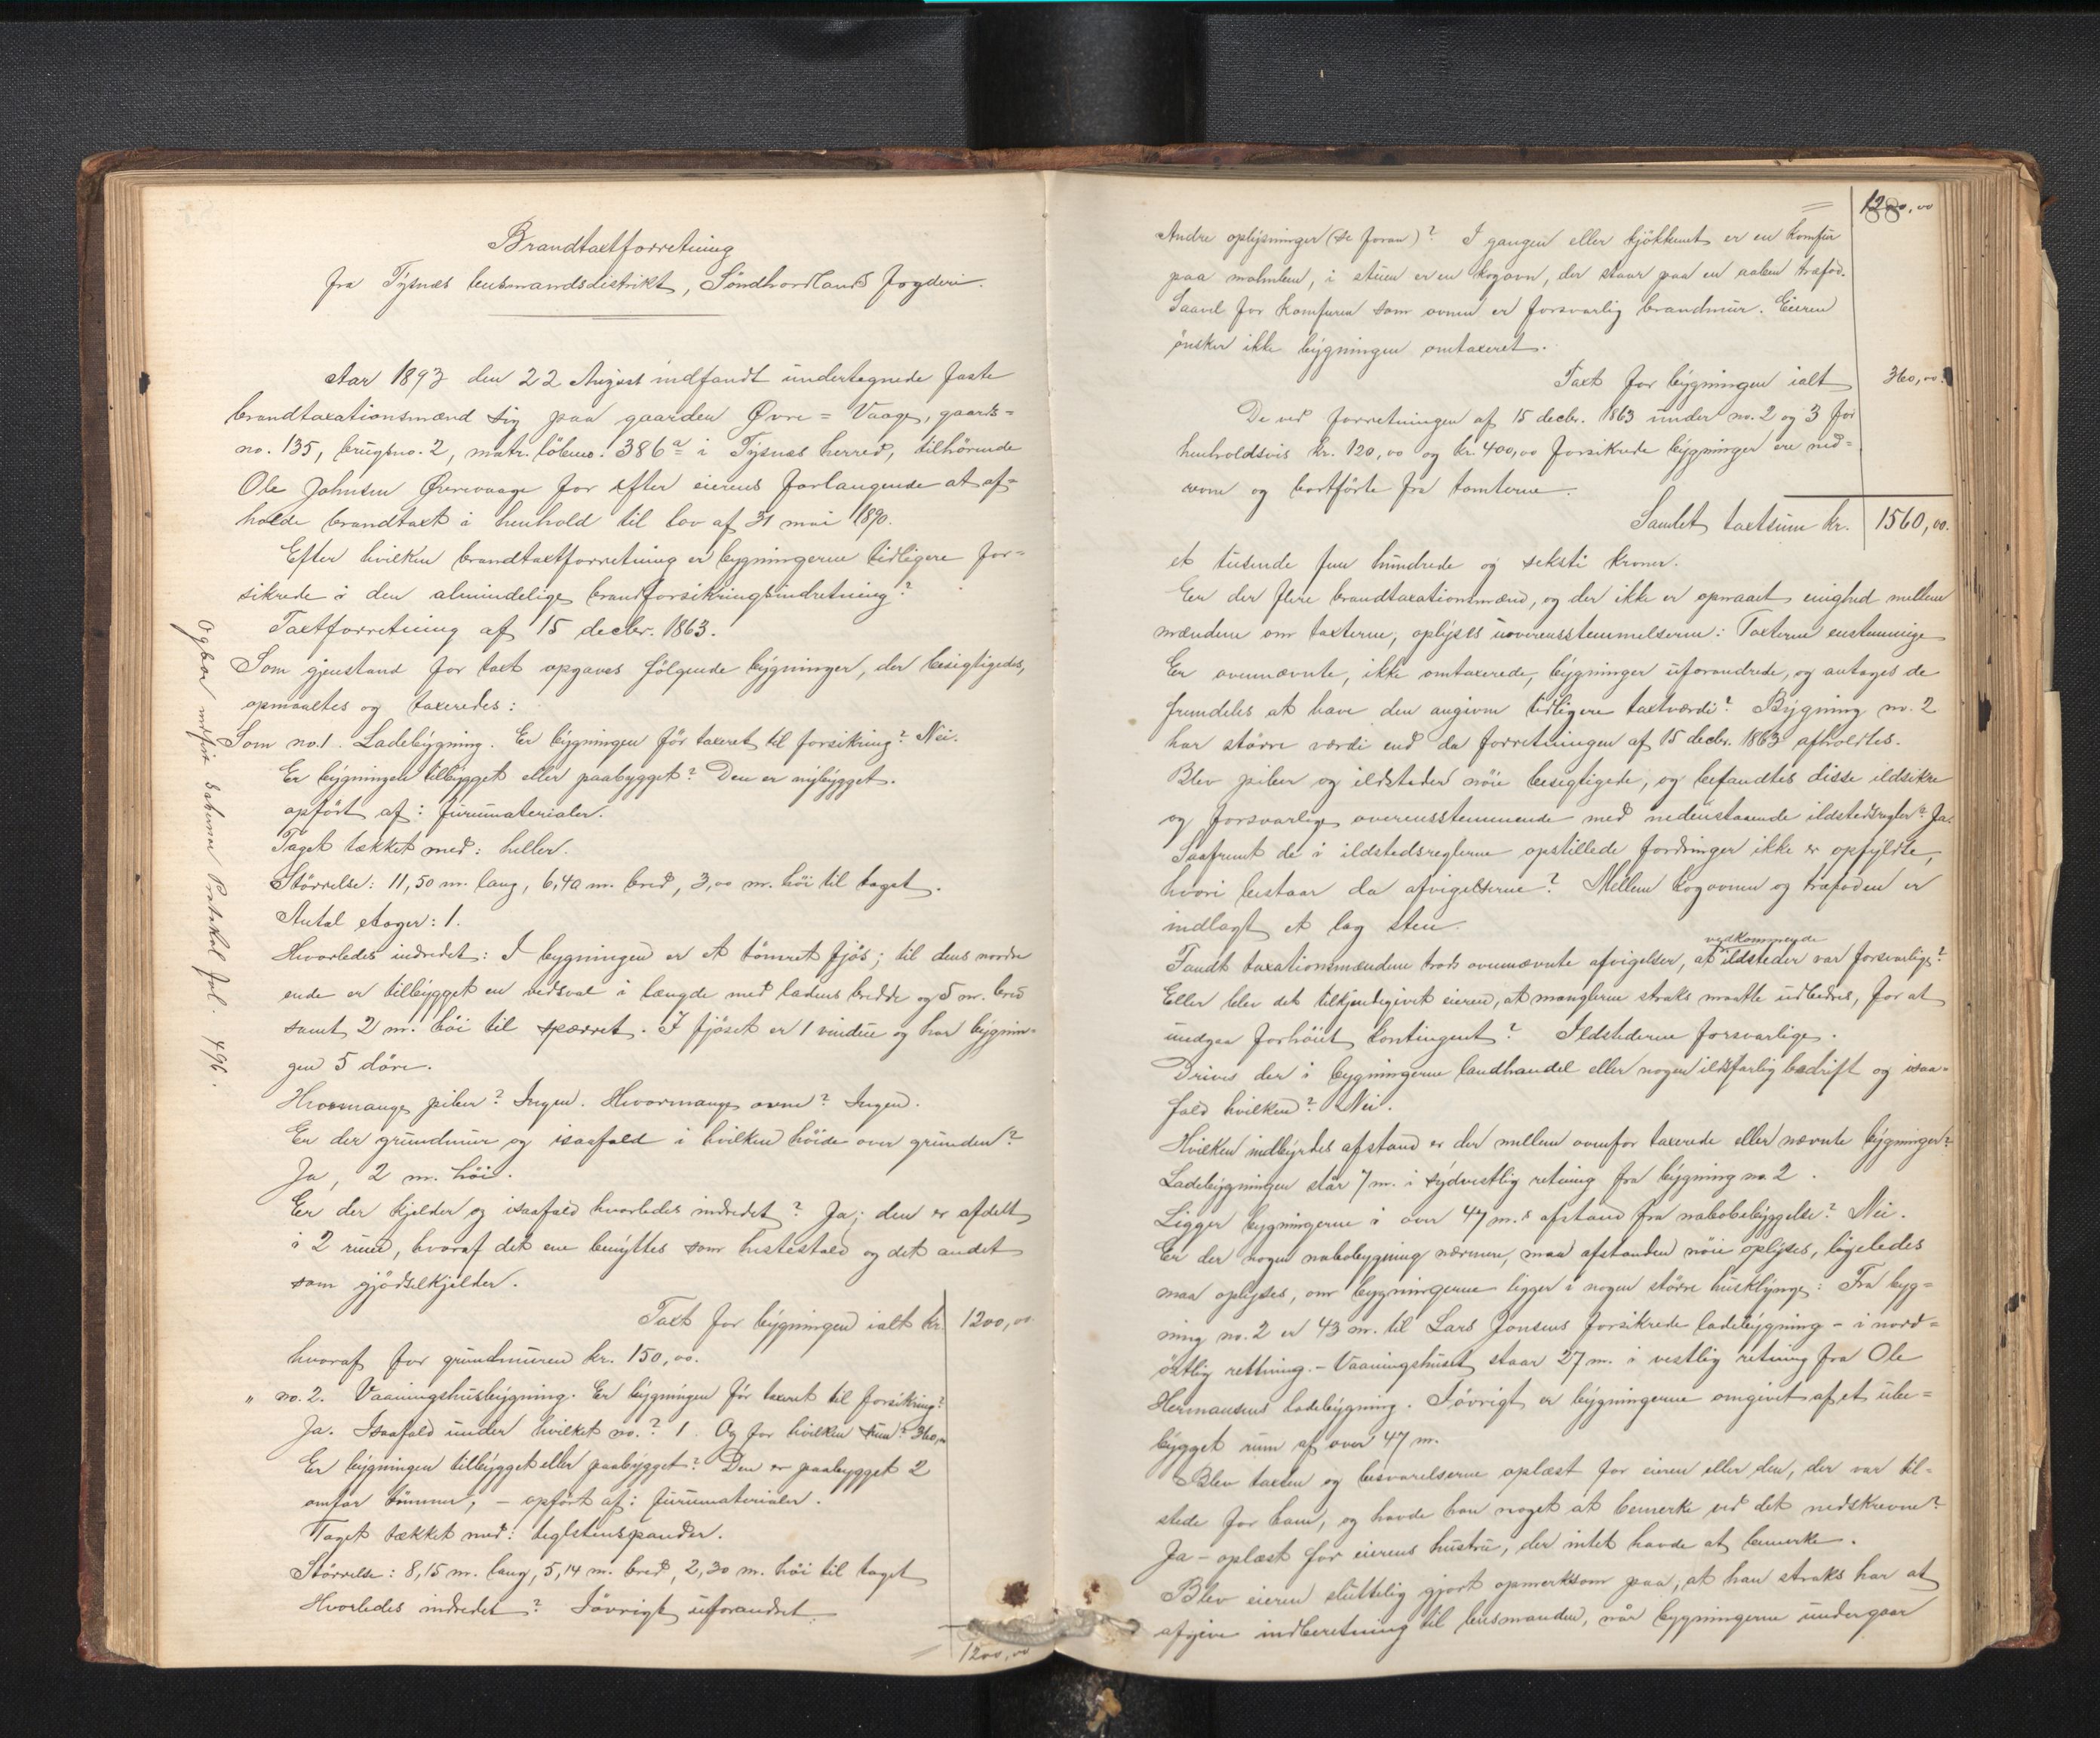 Brandtaxtforretning
fra Tysnæs lensmandsdistrikt, Søndhordlands fogderi.
Aar 1893 den 22 August indfandt undertegnede faste
brandtaxationsmænd sig paa gaarden Øvre=Vaage, gaards=
no. 135, brugsno. 2, matr. löbeno. 386a i Tysnæs herred, tilhörende
Ole Johnsen Øvrevaage for efter eierens forlangende at af=
holde brandtaxt i henhold til lov af 31 mai 1890.
Efter hvilken brandtaxtforretning er bygningerne tidligere for=
sikrede i den almindelige brandforsikringsindretning?
Taxtforretning af 15 decbr. 1863.
Som gjenstand for taxt opgaves fölgende bygninger, der besigtigedes,
opmaaltes og taxeredes:
Som no. 1. Ladebygning. Er bygningen för taxeret til forsikring? Nei.
Er bygningen tilbygget eller paabygget? Den er nybygget.
opfört af: furumaterialer.
Taget tækket med: heller.
Störrelse: 11,50 m. lang, 6,40 m. bred, 3,00 m. höi til taget.
Antal etager: 1.
Hvorledes indredet: I bygningen er et tömret fjös; til dens nordre
ende er tilbygget en vedsval i længde med ladens bredde og 5 m. bred
samt 2 m. höi til spærret. I fjöset er 1 vindue og har bygnin=
gen 5 döre.
Hvormange piber? Ingen. Hvormange ovne? Ingen.
Er der grundmur og isaafald i hvilken höide over grunden?
Ja, 2 m. höi.
Er der kjelder og isaafald hvorledes indredet? Ja; den er afdelt
i 2 rum, hvoraf det ene benyttes som hestestald og det andet
som gjödselkjelder.
Taxt for bygningen ialt kr. 1200,00
hvoraf for grundmuren kr. 150,00.
" no. 2. Vaaningshusbygning. Er bygningen för taxeret til forsikring?
Ja. Isaafald under hvilket no.? 1. Og for hvilken sum? 360,00
Er bygningen tilbygget eller paabygget? Den er paabygget 2
omfar tömmer; - opfört af: furumaterialer.
Taget tækket med: teglstenspander.
Störrelse: 8,15 m. lang, 5,14 m. bred, 2,30 m. höi til taget
Hvorledes indredet? Iövrigt uforandret.
= 1200,00
Protokol fol. 496.
88
= 1200,00
Andre oplysninger (se foran)? I gangen eller kjökkenet er en komfur
paa malmben, i stuen er en kogovn, der staar paa en aaben træfod.
Saavel for komfuren som ovnen er forsvarlig brandmur. Eieren
önsker ikke bygningen omtaxeret.
Taxt for bygningen ialt 360,00.
De ved forretningen af 15 decbr. 1863 under no. 2 og 3 for
henholdsvis kr. 120,00 og kr. 400,00 forsikrede bygninger ere ned=
revne og bortförte fra tomterne.
Samlet taxtsum kr. 1560,00.
et tusende fem hundrede og seksti kroner.
Er der flere brandtaxationsmænd, og der ikke er opnaaet enighed mellem
mændene om taxterne, oplyses uoverensstemmelserne: Taxterne enstemmige
Er ovennævnte, ikke omtaxerede, bygninger uforandrede, og antages de
fremdeles at have den angivne tidligere taxtværdi? Bygning no. 2
har större værdi end da forretningen af 15 decbr. 1863 afholdtes.
Blev piber og ildsteder nöie besigtigede, og befandtes disse ildsikre
og forsvarlige overensstemmende med nedenstaaende ildstedsregler? Ja.
Saafremt de i ildstedsreglerne opstillede fordringer ikke er opfyldte,
hvori bestaar da afvigelserne? Mellem kogovnen og træfoden er
indlagt et lag sten.
vedkommende
Fandt taxationsmændene trods ovennævnte afvigelser, at ildsteder var forsvarlige?
Eller blev det tilkjendegivet eieren, at manglerne straks maatte udbedres, for at
undgaa forhöiet kontingent? Ildstederne forsvarlige.
Drives der i bygningerne landhandel eller nogen ildsfarlig bedrift og isaa=
fald hvilken? Nei.
Hvilken indbyrdes afstand er der mellem ovenfor taxerede eller nævnte bygninger?
Ladebygningen står 7 m. i sydvestlig retning fra bygning no. 2.
Ligger bygningerne i over 47 m.s afstand fra nabobebyggelse? Nei.
Er der nogen nabobygning nærmere, maa afstanden nöie oplyses, ligeledes
maa oplyses, om bygningerne ligger i nogen större husklynge: Fra byg=
ning no. 2 er 43 m. til Lars Jonsens forsikrede ladebygning - i nord=
östlig rettning. - Vaaningshuset staar 27 m. i vestlig retning fra Ole
Hermansens ladebygning. Iövrigt er bygningerne omgivet af et ube=
bygget rum af over 47 m.
Blev taxten og besvarelserne oplæst for eieren eller den, der var til=
stede for ham, og havde han noget at bemerke ved det nedskrevne?
Ja - oplæst for eierens hustru, der intet havde at bemerke.
Blev eieren sluttelig gjort opmerksom paa, at han straks har at
afgive indberetning til lensmanden, når bygningerne undergaar